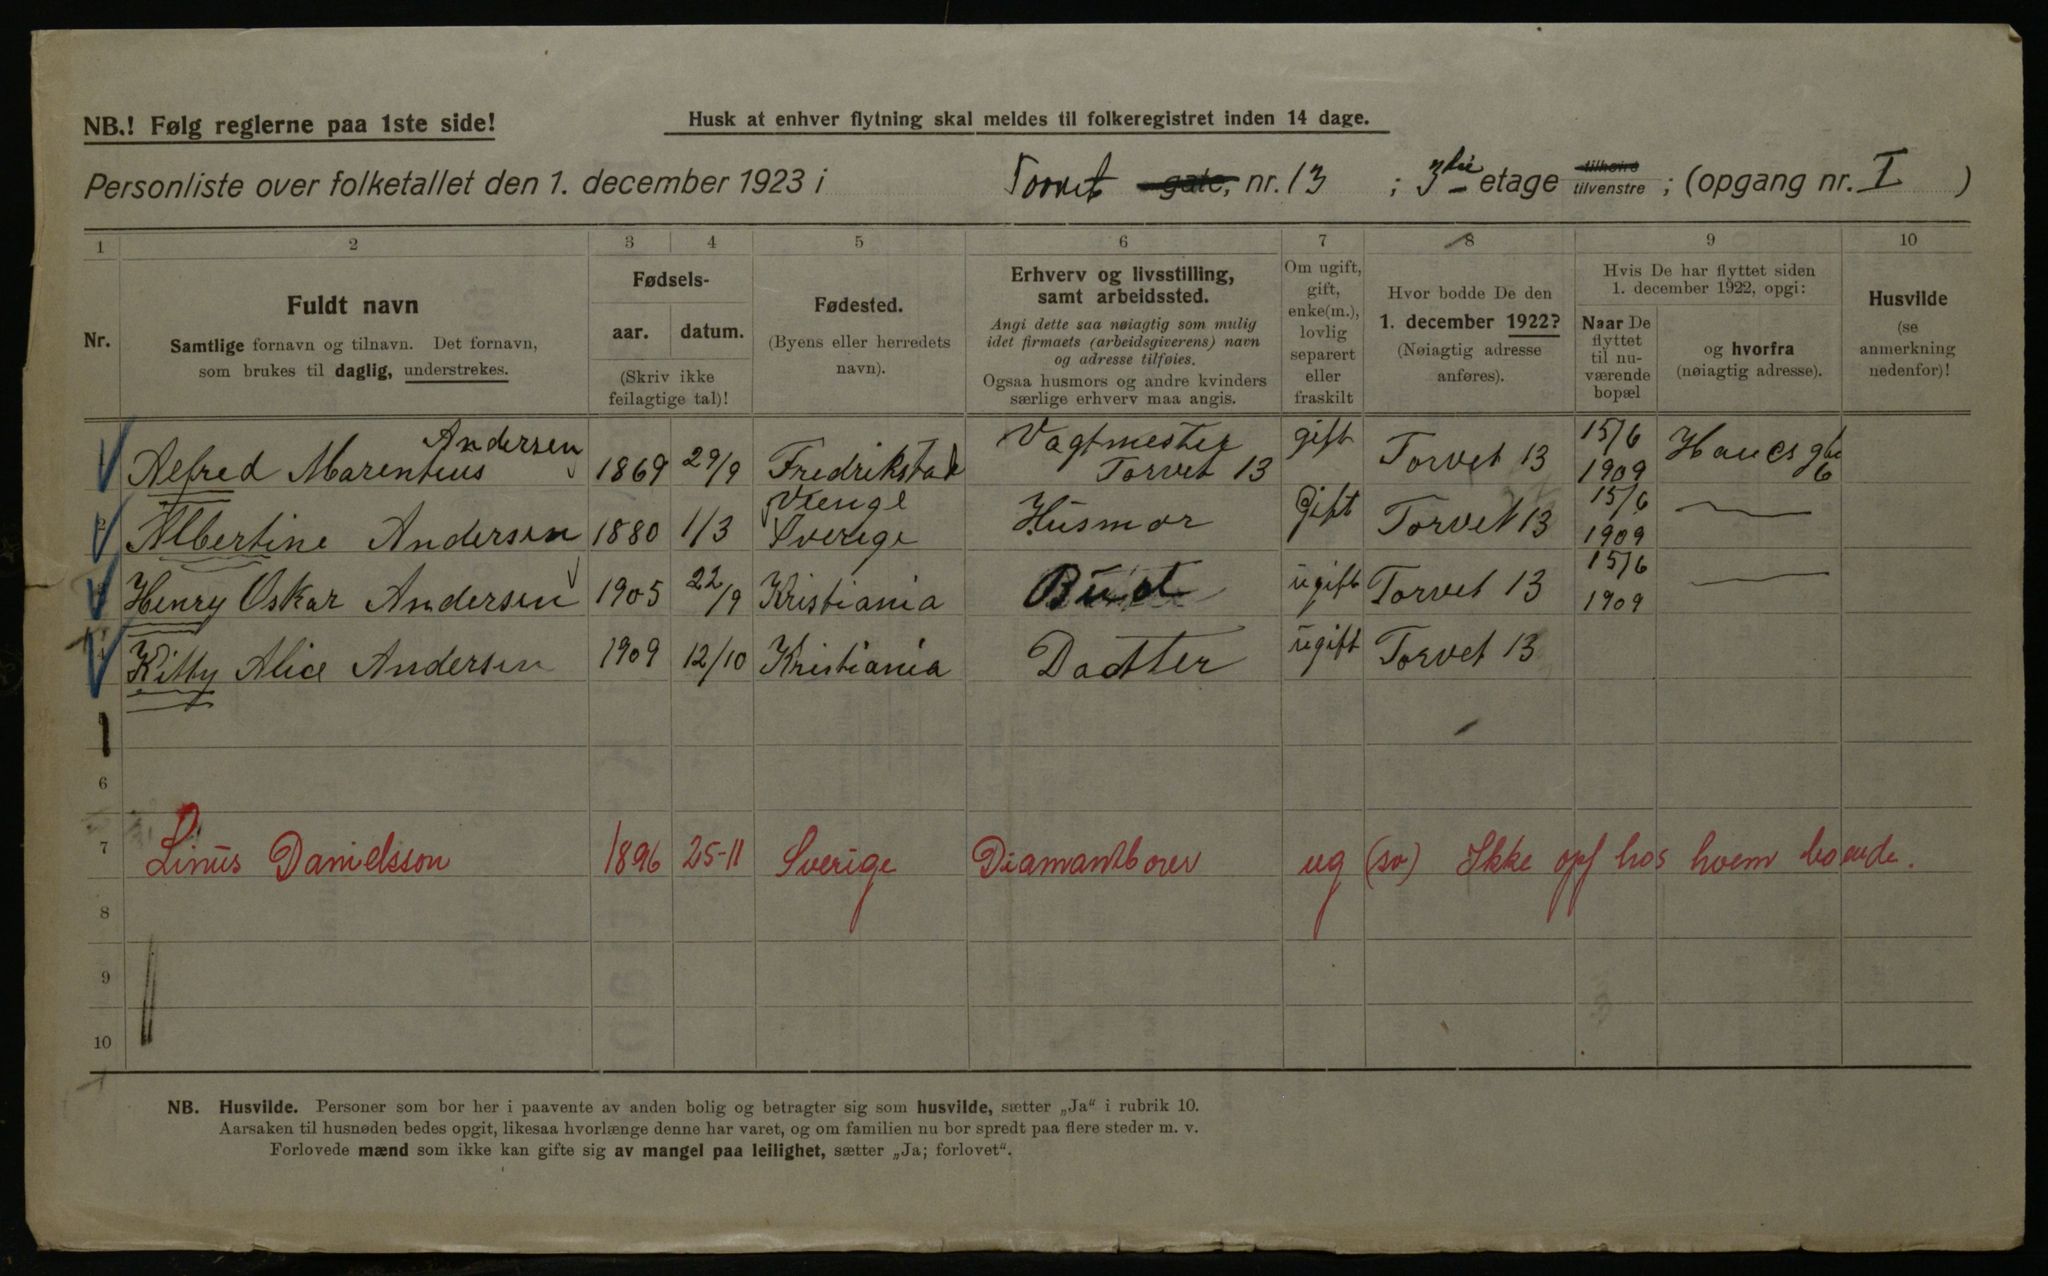 NB.! Følg reglerne paa 1ste side!
Husk at enhver flytning skal meldes til folkeregistret inden 14 dage.
Personliste over folketallet den 1. december 1923 i Torvet gate, nr. 13 ; 3die etage tilhøire tilvenstre ; (opgang nr. I )
1 2 3 4 5 6 7 8 9 10
Nr.
Fuldt navn
Samtlige fornavn og tilnavn. Det fornavn,
som brukes til daglig, understrekes.
Fødsels-
aar. datum.
(Skriv ikke
feilagtige tal)!
Fødested.
(Byens eller herredets
navn).
Erhverv og livsstilling,
samt arbeidssted.
Angi dette saa nøiagtig som mulig
idet firmaets (arbeidsgiverens) navn
og adresse tilføies.
Ogsaa husmors og andre kvinders
særlige erhverv maa angis.
Om ugift,
gift,
enke(m.),
lovlig
separert
eller
fraskilt
Hvor bodde De den
1. december 1922?
(Nøiagtig adresse
anføres).
Hvis De har flyttet siden
1. december 1922, opgi:
Naar De
flyttet
til nu-
værende
bopæl
og hvorfra
(nøiagtig adresse).
Husvilde
(se
anmerkning
nedenfor)!
Alfred Marentius Andersen 1869 29/9 Fredrikstad Vagtmester Torvet 13 gift Torvet 13 15/6 1909
Albertine Andersen 1880 1/3 Sverige Husmor Gift Torvet 13 15/6 1909 —
Henry Oskar Andersen 1905 22/9 Kristiania Bud ugift Torvet 13 15/6 1909 —
4 Kitty Alice Andersen 1909 12/10 Kristiania Datter ugift Torvet 13
6
7 Linus Danielsson 1896 25-11 Sverige Diamantborer ug (sv) Ikke opf hos hvem boende.
8
9
10
NB. Husvilde. Personer som bor her i paavente av anden bolig og betragter sig som husvilde, sætter „Ja“ i rubrik 10.
Aarsaken til husnøden bedes opgit, likesaa hvorlænge denne har varet, og om familien nu bor spredt paa flere steder m. v.
Forlovede mænd som ikke kan gifte sig av mangel paa leilighet, sætter „Ja; forlovet“.